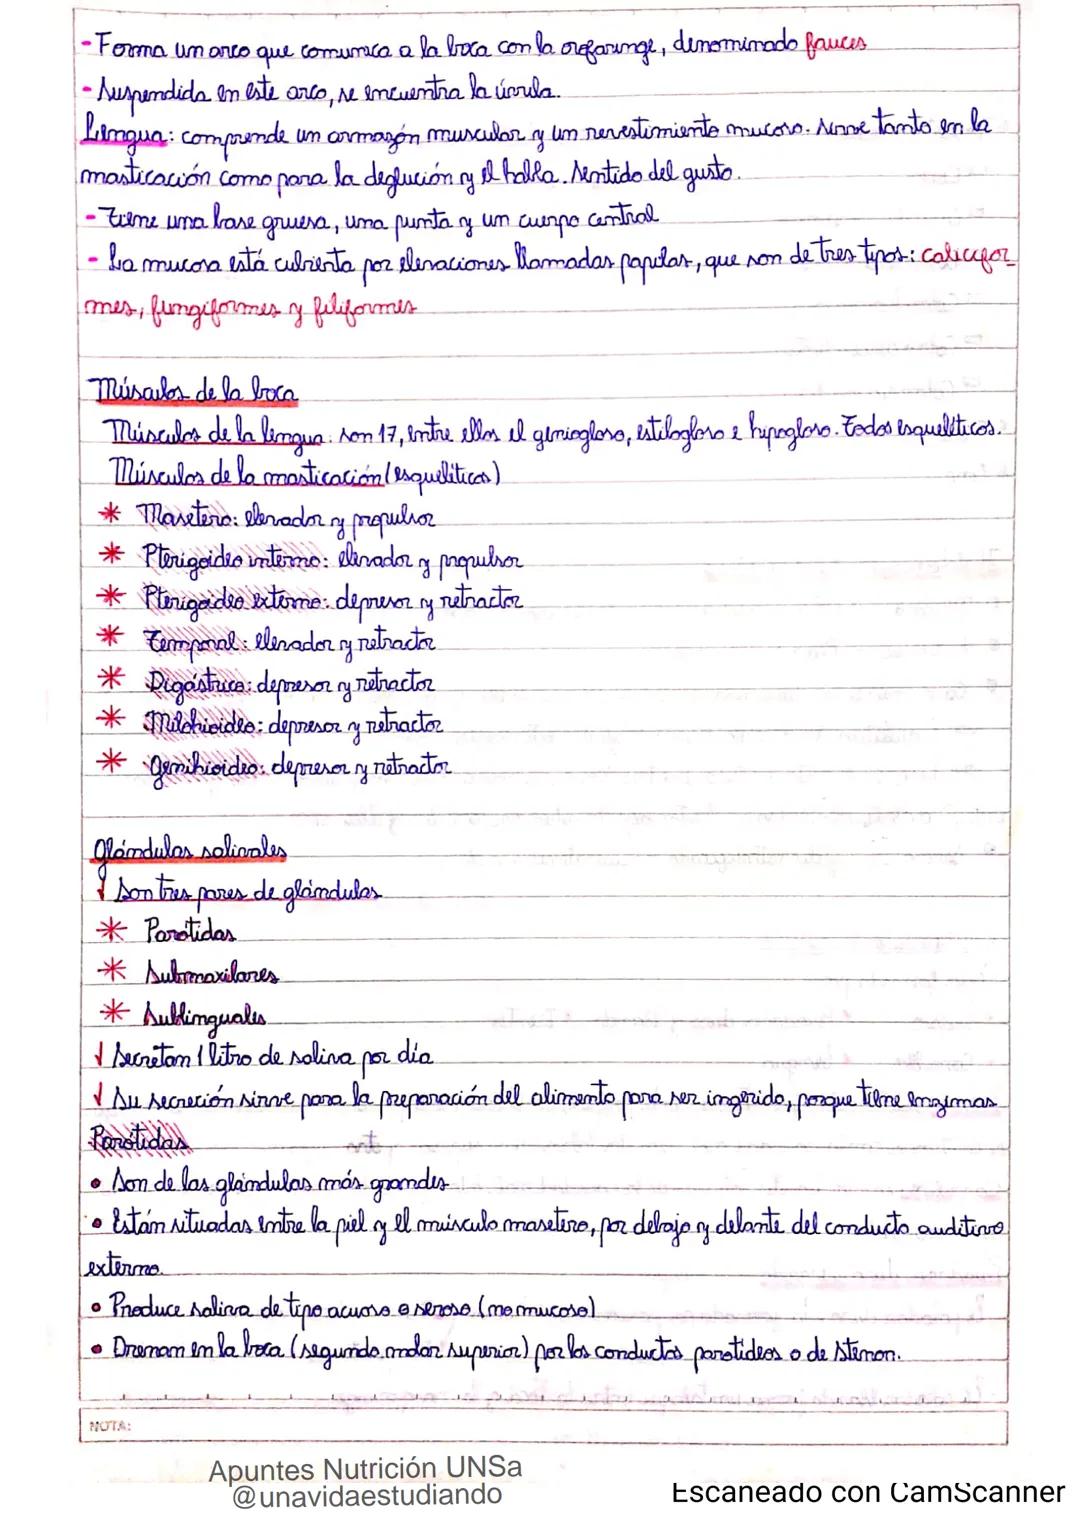 - Forma un arco que comunica a la boca con la orofaringe, denominado fauces
- Suspendida en este arco, se encuentra la úvula.
Lengua: comprende un armazón muscular y un revestimiento mucoso. Sirve tanto en la
masticación como para la deglución y el habla. Sentido del gusto.
- Tiene una base gruesa, una punta y un cuerpo central
- La mucosa está cubierta por elevaciones llamadas papilas, que son de tres tipos: calicifor_
mes, fungiformes y filiformes
Músculos de la boca
Músculos de la lengua: son 17, entre ellos el geniogloso, estilogloso e hipogloso. Todos esqueléticos.
Músculos de la masticación (esqueléticos)
* Masetero: elevador y propulsor
* Pterigoideo interno: elevador y propulsor
* Pterigoideo externo: depresor y retractor
* Temporal: elevador y retractor
* Digástrico: depresor y retractor
* Milohioideo: depresor y retractor
* Genihioideo: depresor y retractor
Glándulas salivales
↓ Son tres pares de glándulas
* Parótidas
* Submaxilares
* Sublinguales
↓ Secretan 1 litro de saliva por día
↓ Su secreción sirve para la preparación del alimento para ser ingerido, porque tiene enzimas
Parótidas
• Son de las glándulas más grandes
• Están situadas entre la piel y el músculo masetero, por debajo y delante del conducto auditivo
externo.
• Produce saliva de tipo acuoso o seroso (no mucoso)
• Drenan en la boca (segundo molar superior) por los conductos parotídeos o de Stenon.
NOTA:
Apuntes Nutrición UNSa
@unavidaestudiando
Escaneado con CamScanner